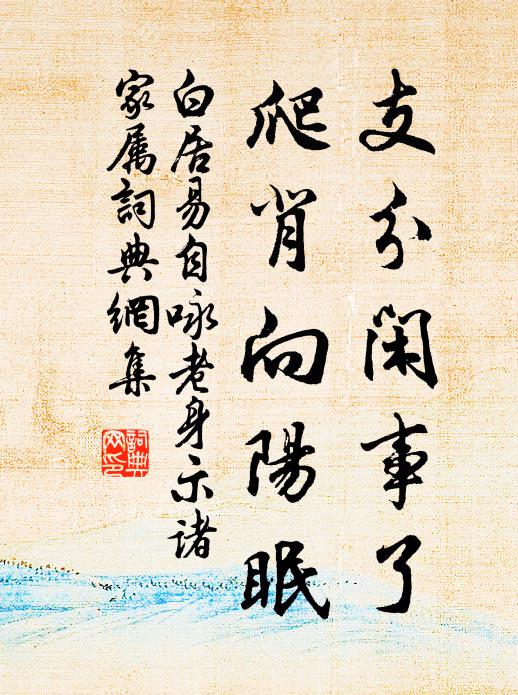 支分闲事了
爬背向陽眠
白居易自咏老身示諸
家属詞典網集
詞典
网印